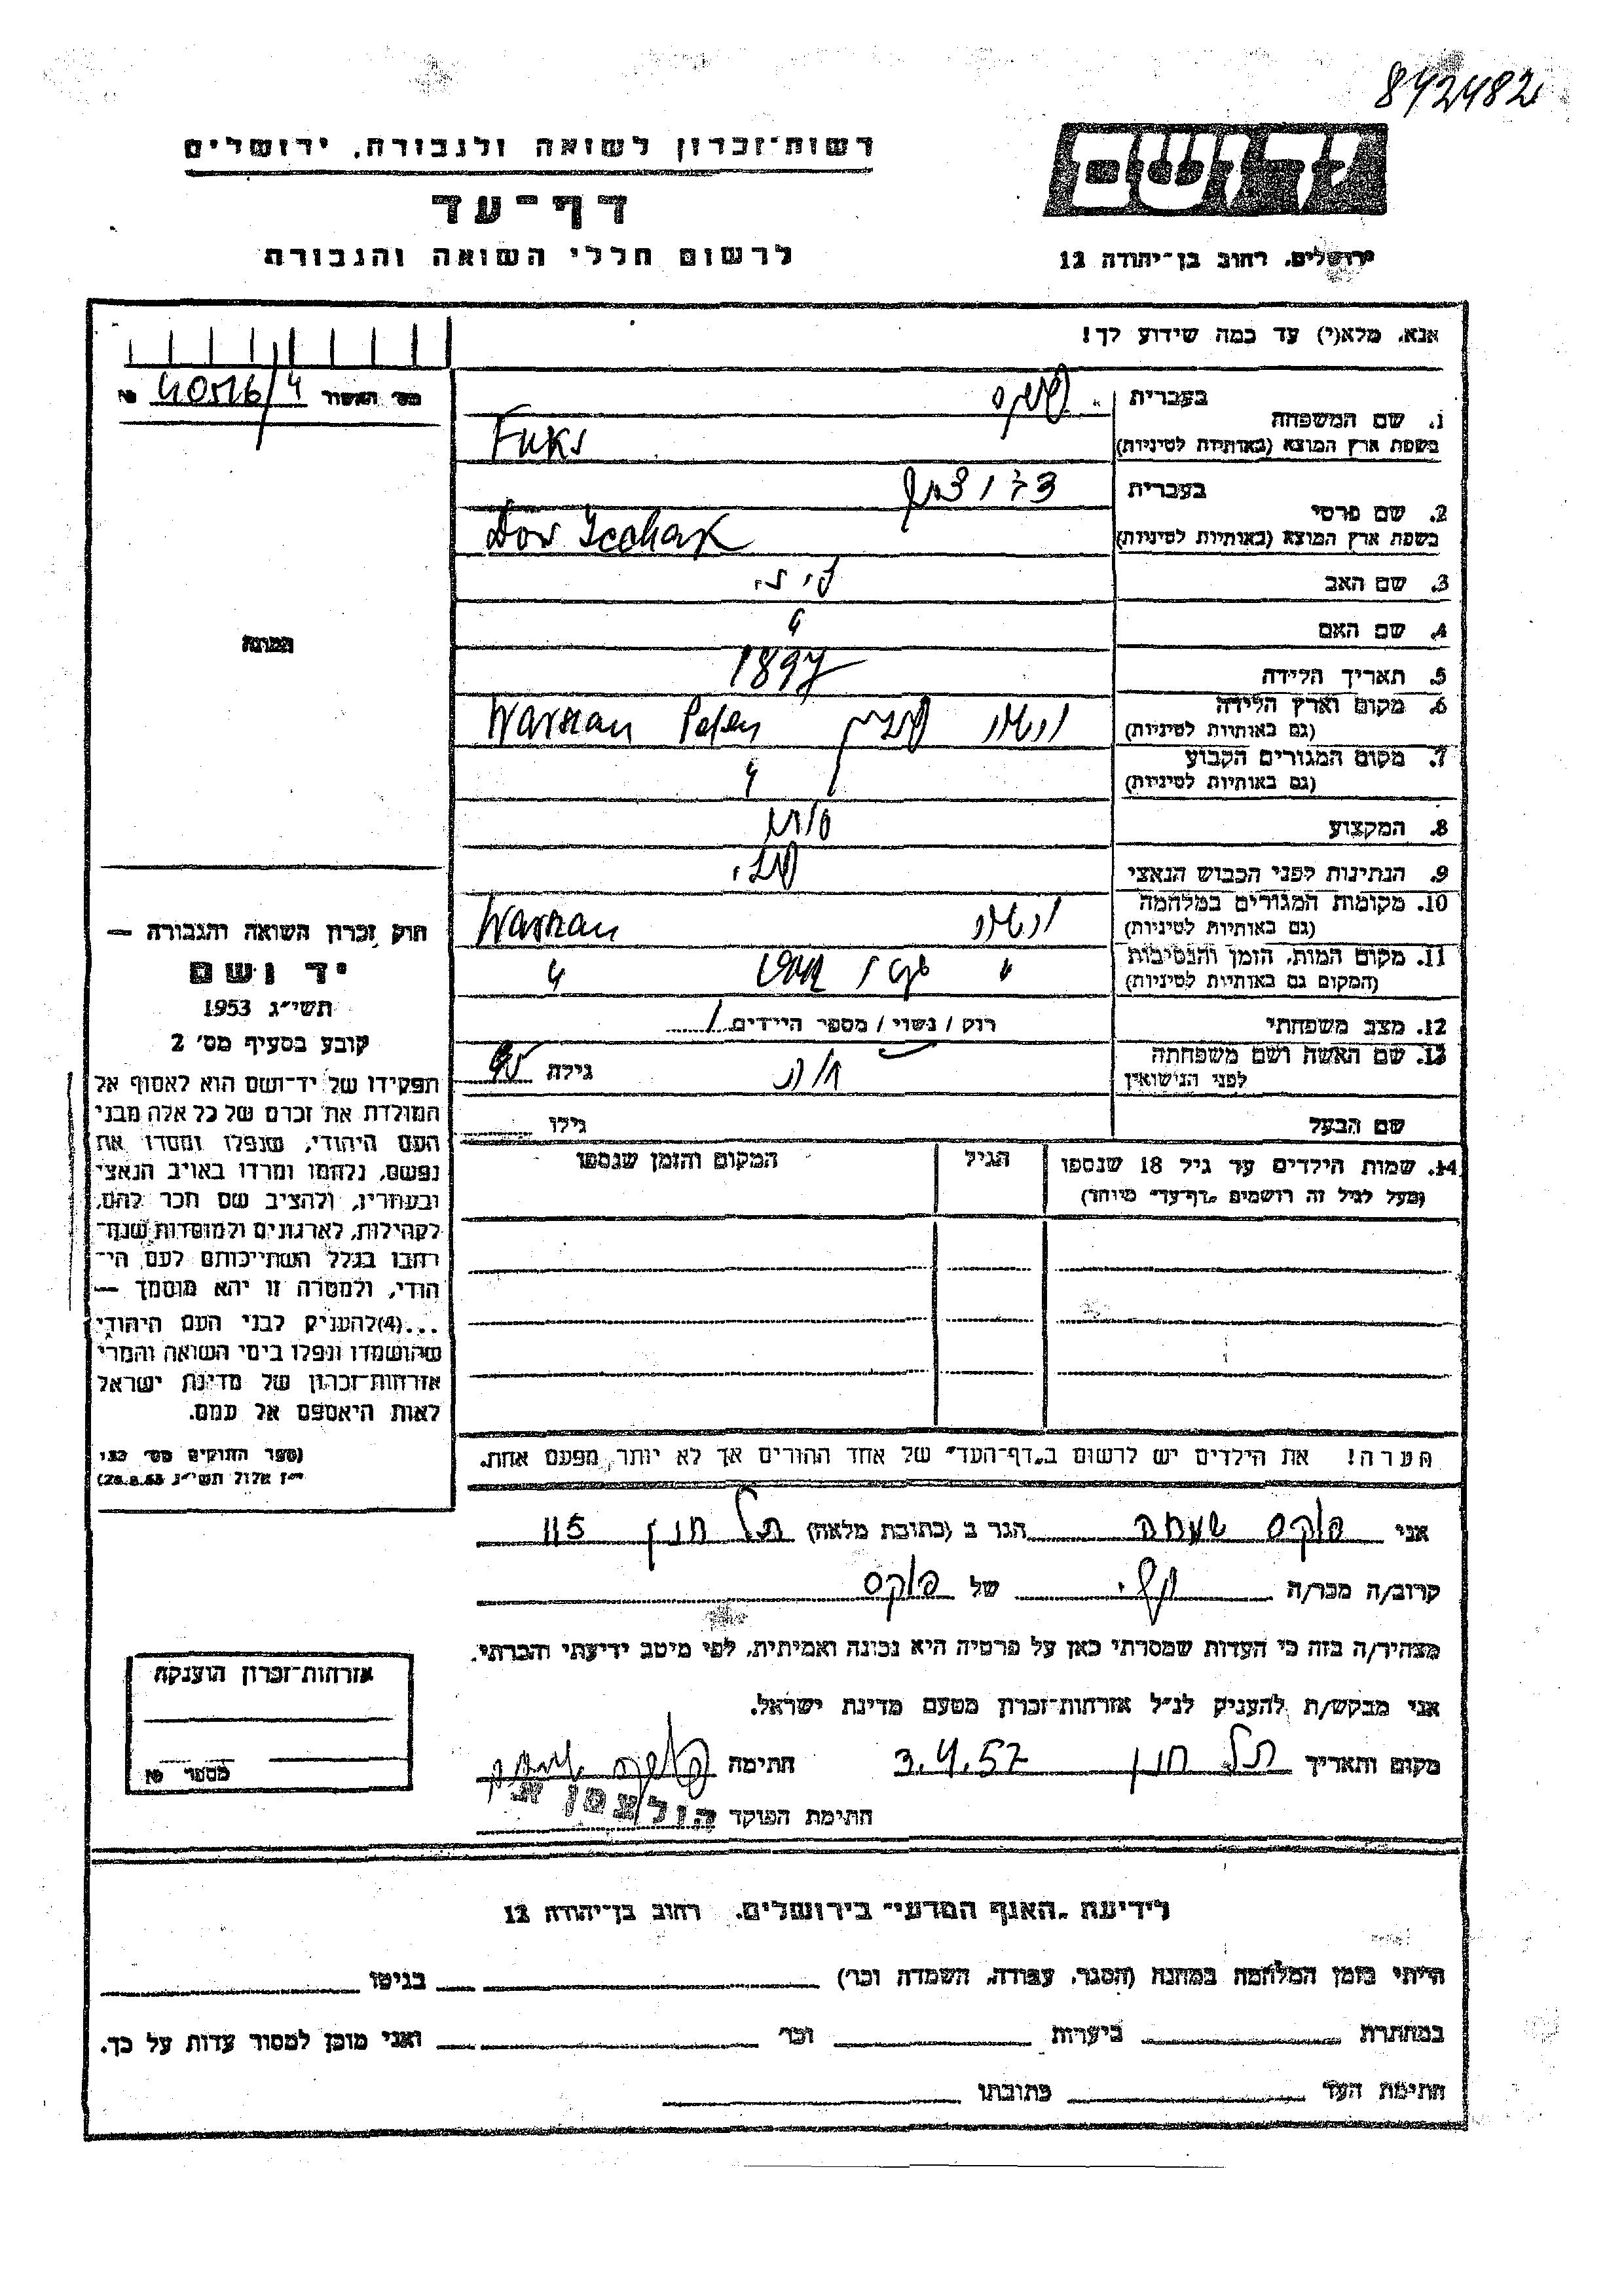 842482
רשות־זכרון לשואה ולגבורה, ירושלים
יד ושם
דף־עד
לרשום חללי השואה והגבורה
ירושלים, רחוב בן־יהודה 12
אנא, מלא(י) עד כמה שידוע לך!
מס׳ האשור № 40516/4
1. שם המשפחה בעברית פוקס
בשפת ארץ המוצא (באותיות לטיניות) Fuks
2. שם פרטי בעברית
בשפת ארץ המוצא (באותיות לטיניות) Dow Icchak
3. שם האב
4. שם האם
5. תאריך הלידה 1897
6. מקום וארץ הלידה (גם באותיות לטיניות) ורשה פולין Warszaw Polen
7. מקום המגורים הקבוע (גם באותיות לטיניות) "
8. המקצוע סוחר
9. הנתינות לפני הכבוש הנאצי פולני
10. מקומות המגורים במלחמה (גם באותיות לטיניות) ורשה Warszaw
11. מקום המות, הזמן והנסיבות (המקום גם באותיות לטיניות) "
12. מצב משפחתי רווק / נשוי / מספר הילדים 1
13. שם האשה ושם משפחתה לפני הנישואין חוה גילה
שם הבעל גילו
14. שמות הילדים עד גיל 18 שנספו
(מעל לגיל זה רושמים „דף־עד״ מיוחד)
הגיל
המקום והזמן שנספו
הערה! את הילדים יש לרשום ב„דף־העד״ של אחד ההורים אך לא יותר מפעם אחת.
התמונה
חוק זכרון השואה והגבורה —
יד ושם
תשי״ג 1953
קובע בסעיף מס׳ 2
תפקידו של יד־ושם הוא לאסוף אל
המולדת את זכרם של כל אלה מבני
העם היהודי, שנפלו ומסרו את
נפשם, נלחמו ומרדו באויב הנאצי
ובעוזריו, ולהציב שם וזכר להם,
לקהילות, לארגונים ולמוסדות שנח־
רבו בגלל השתייכותם לעם הי־
הודי, ולמטרה זו יהא מוסמך —
...(4) להעניק לבני העם היהודי
שהושמדו ונפלו בימי השואה והמרי
אזרחות־זכרון של מדינת ישראל
לאות היאספם אל עמם.
(ספר החוקים מס׳ 132
י״ז אלול תשי״ג 28.8.53)
אני פוקס הגר ב (כתובת מלאה) תל חנן 115
קרוב/ה מכר/ה של פוקס
מצהיר/ה בזה כי העדות שמסרתי כאן על פרטיה היא נכונה ואמיתית, לפי מיטב ידיעתי והכרתי.
אני מבקש/ת להעניק לנ״ל אזרחות־זכרון מטעם מדינת ישראל.
מקום ותאריך תל חנן 3.4.57 חתימה
חתימת הפוקד
אזרחות־זכרון הוענקה
מספר №
לידיעת „האגף המדעי״ בירושלים, רחוב בן־יהודה 12
הייתי בזמן המלחמה במחנה (הסגר, עבודה, השמדה וכו׳) בגיטו
במחתרת ביערות וכו׳ ואני מוכן למסור עדות על כך.
חתימת העד כתובתו